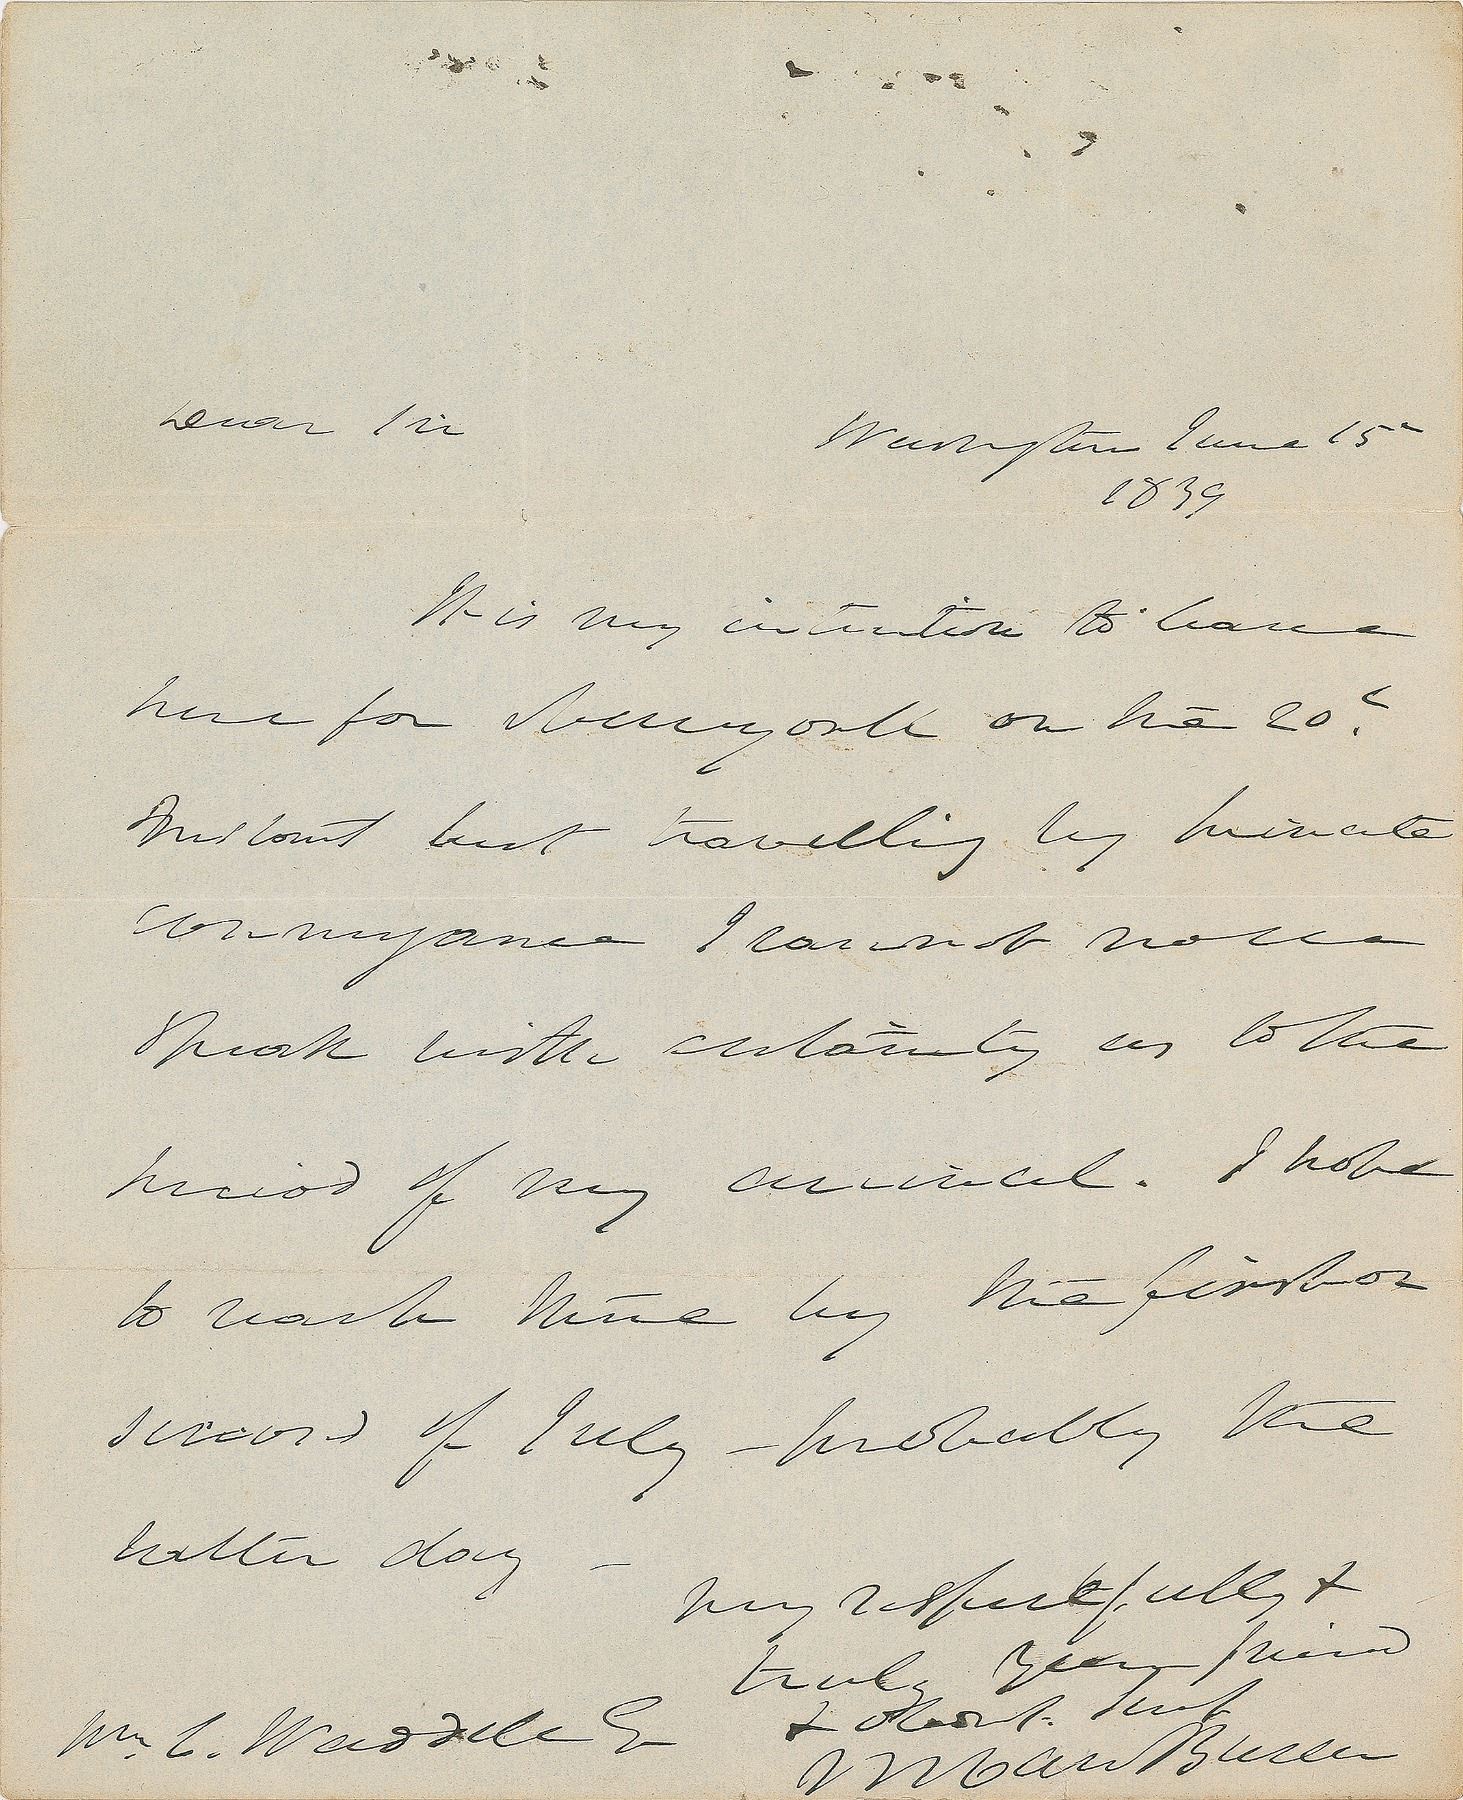 Dear Sir
Washington June 15
1839
It is my intention to leave
here for Newyork on the 20t
Instant but travelling by private
conveyance I cannot now
speak with certainty as to the
period of my arrival. I hope
to reach there by the first or
second of July - probably the
latter day -
very respectfully &
truly your friend
& obedt. Servt
M Van Buren
Wm. C. Waddell Esq